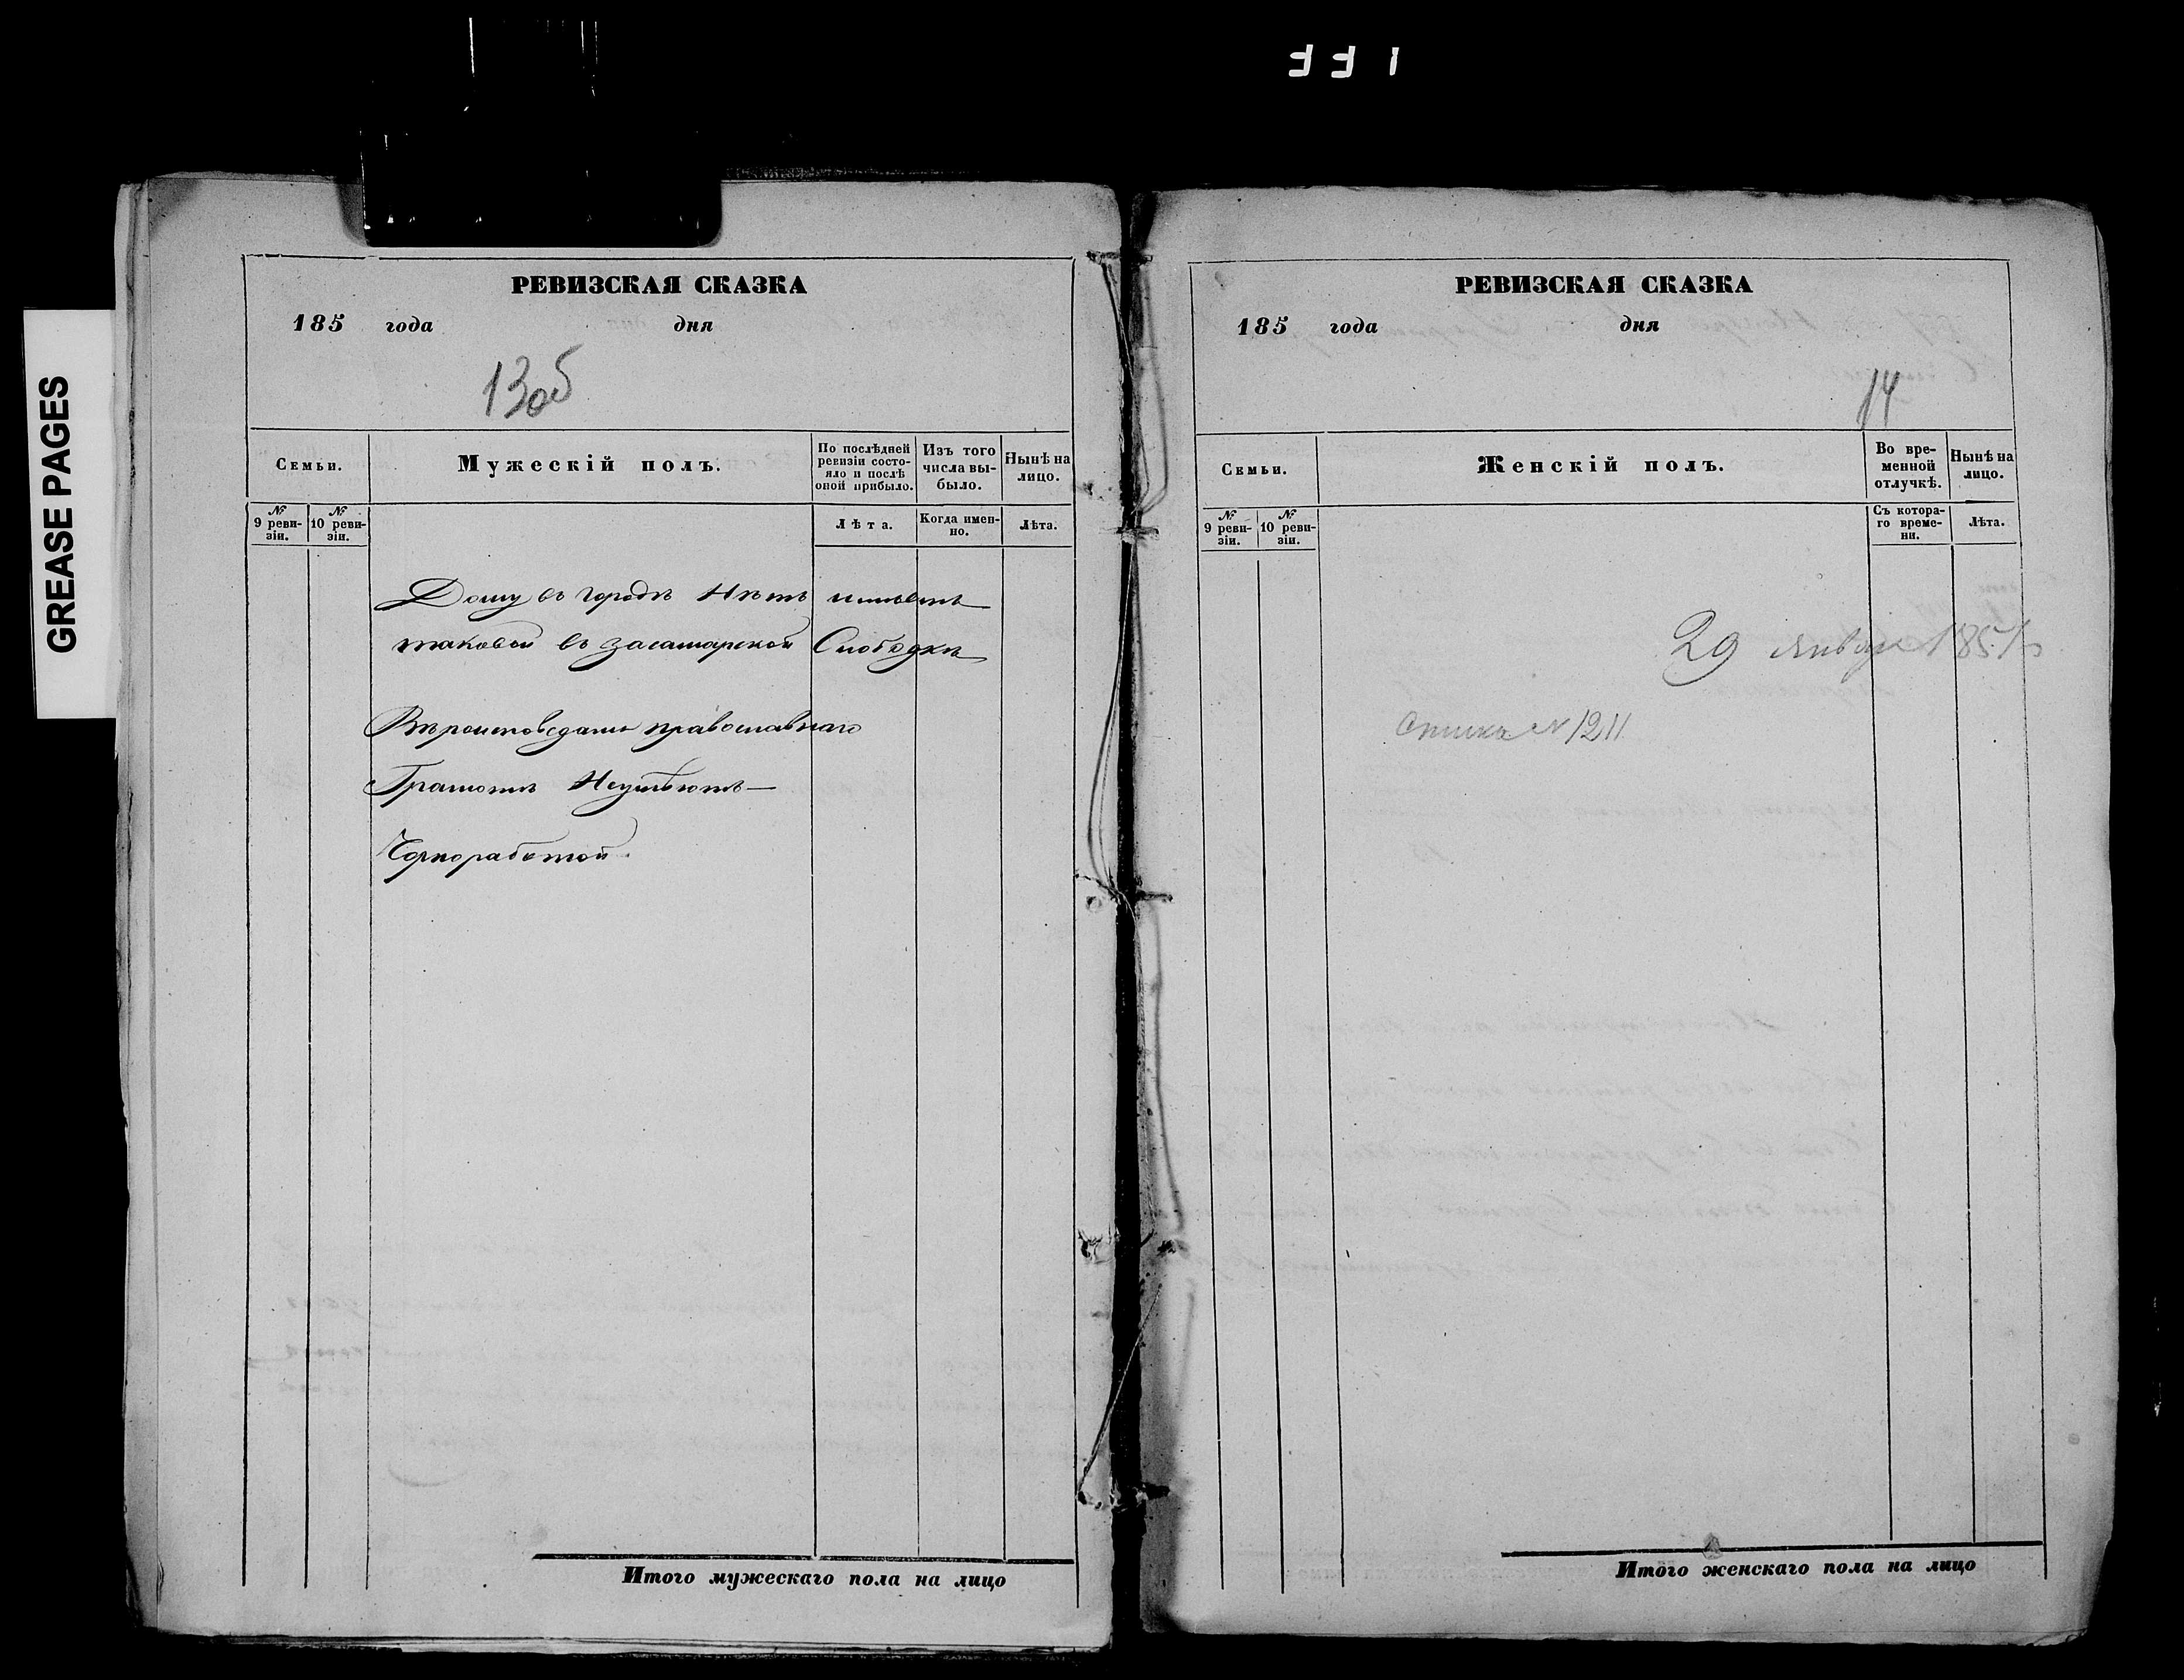 GREASE PAGES
РЕВИЗСКАЯ СКАЗКА
185 года дня
13об
Семьи.
Мужескій полъ.
По послѣдней ревизіи состояло и послѣ оной прибыло.
Изъ того числа выбыло.
Нынѣ на лицо.
№ 9 ревизіи.
№ 10 ревизіи.
Лѣта.
Когда именно.
Лѣта.
Дому въ городѣ Нѣтъ имѣетъ
таковой въ засамарской Слободкѣ
Вѣроисповеданія православнаго
Грамотѣ Неумѣютъ
Чорноработой
Итого мужескаго пола на лицо
РЕВИЗСКАЯ СКАЗКА
185 года дня
14
Семьи.
Женскій полъ.
Во временной отлучкѣ.
Нынѣ на лицо.
№ 9 ревизіи.
№ 10 ревизіи.
Съ котораго времени.
Лѣта.
29 января 185
№ 1211
Итого женскаго пола на лицо